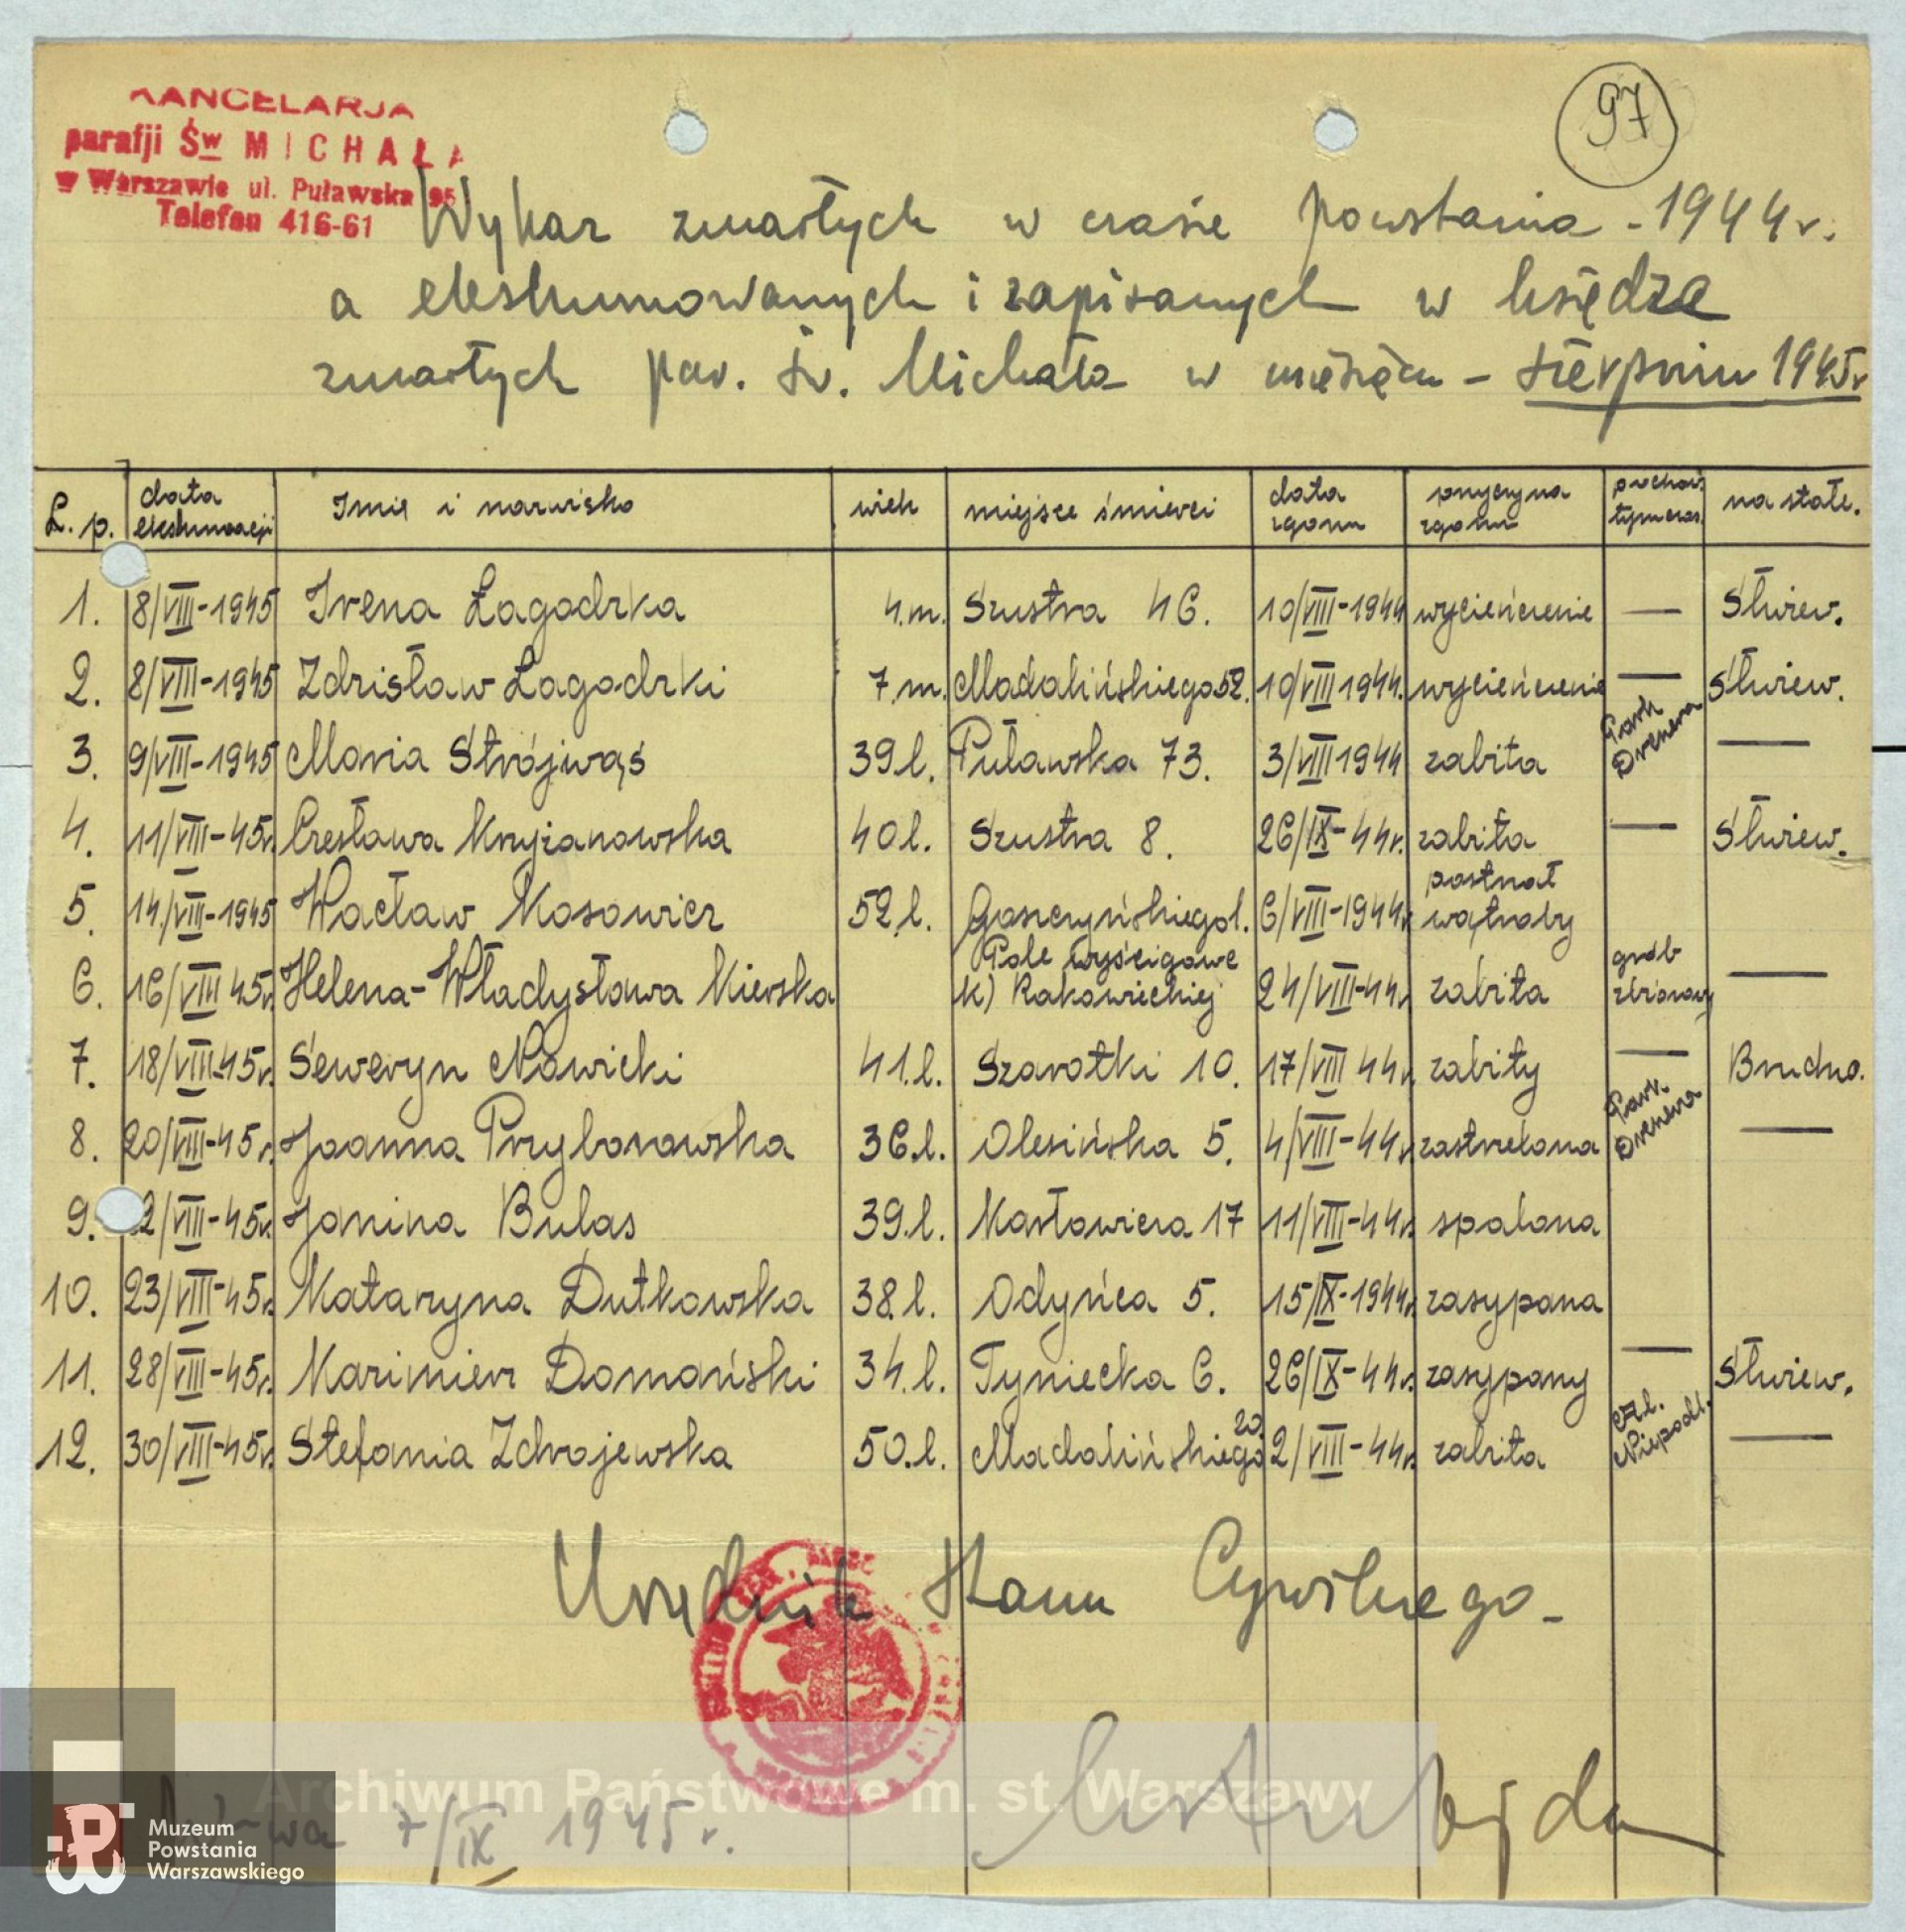 KANCELARJA
parafji Św MICHAŁA
w Warszawie ul. Puławska 95
Telefon 416-61
97
Wykaz zmarłych w czasie powstania - 1944 r.
a ekshumowanych i zapisanych w księdze
zmarłych par. św. Michała w miesiącu - sierpniu 1945 r
L. p. data ekshumacji Imię i nazwisko wiek miejsce śmierci data zgonu przyczyna zgonu pochow. tymczas. na stałe.
1. 8/VIII-1945 Irena Łagodzka 4.m. Szustra 46. 10/VIII-1944 wycieńczenie — Służew.
2. 8/VIII-1945 Zdzisław Łagodzki 7.m. Madalińskiego 52. 10/VIII 1944. wycieńczenie — Służew.
3. 9/VIII-1945 Maria Strójwąs 39 l. Puławska 73. 3/VIII 1944 zabita Park Dreszera —
4. 11/VIII-45r. Czesława Kryżanowska 40 l. Szustra 8. 26/IX-44r. zabita — Służew.
5. 14/VIII-1945 Wacław Kosowicz 52.l. Goszczyńskiego 1. 6/VIII-1944r. postrzał wątroby
6. 16/VIII 45r. Helena-Władysława Kierska Pole wyścigowe k) Rakowieckiej 24/VIII-44r. zabita grób zbiorowy —
7. 18/VIII-45r. Seweryn Nowicki 41.l. Szarotki 10. 17/VIII 44r. zabity — Brudno.
8. 20/VIII-45r. Joanna Przyborowska 36.l. Olesińska 5. 4/VIII-44r. zastrzelona Park Dreszera —
9. 2/VIII-45r. Janina Bulas 39.l. Karłowicza 17 11/VIII-44r. spalona
10. 23/VIII-45r. Katarzyna Dutkowska 38.l. Odyńca 5. 15/IX-1944r. zasypana
11. 28/VIII-45r. Kazimierz Domański 34.l. Tyniecka 6. 26/IX-44r. zasypany — Służew.
12. 30/VIII-45r. Stefania Zdrojewska 50.l. Madalińskiego 20. 2/VIII-44r. zabita Al. Niepodl. —
Urzędnik Stanu Cywilnego.
Archiwum Państwowe m. st. Warszawy
7/IX 1945 r.
Muzeum
Powstania
Warszawskiego